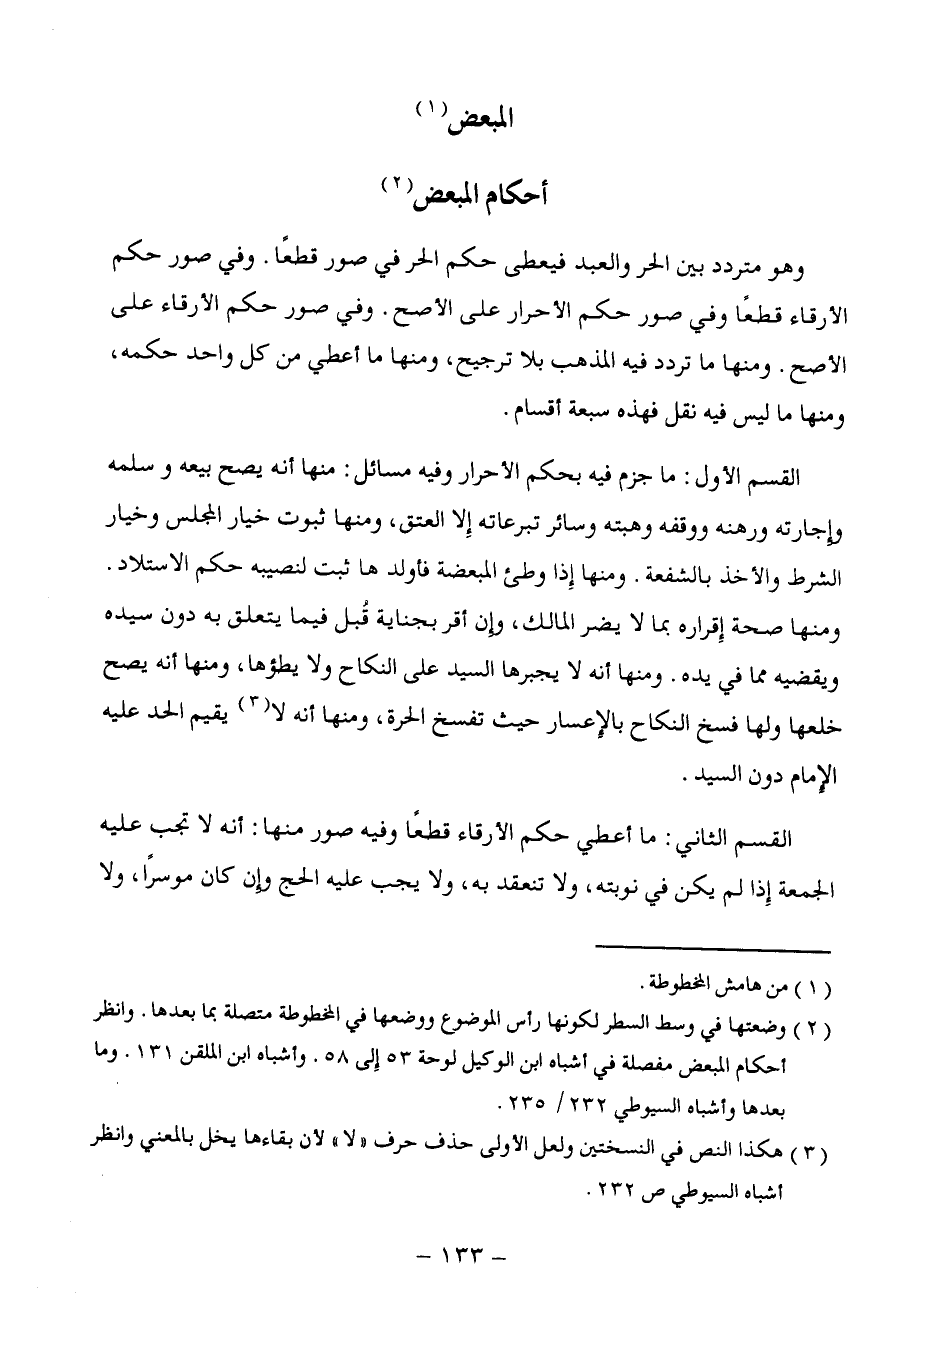 المبعض(١)
أحكام المبعض(٢)
وهو متردد بين الحر والعبد فيعطى حكم الحر في صور قطعًا. وفي صور حكم
الأرقاء قطعًا وفي صور حكم الأحرار على الأصح. وفي صور حكم الأرقاء على
الأصح. ومنها ما تردد فيه المذهب بلا ترجيح، ومنها ما أعطي من كل واحد حكمه،
ومنها ما ليس فيه نقل فهذه سبعة أقسام.
القسم الأول: ما جزم فيه بحكم الأحرار وفيه مسائل: منها أنه يصح بيعه و سلمه
وإجارته ورهنه ووقفه وهبته وسائر تبرعاته إلا العتق، ومنها ثبوت خيار المجلس وخيار
الشرط والأخذ بالشفعة. ومنها إذا وطئ المبعضة فأولد ها ثبت لنصيبه حكم الاستلاد.
ومنها صحة إقراره بما لا يضر المالك، وإن أقر بجناية قُبل فيما يتعلق به دون سيده
ويقضيه مما في يده. ومنها أنه لا يجبرها السيد على النكاح ولا يطؤها، ومنها أنه يصح
خلعها ولها فسخ النكاح بالإعسار حيث تفسخ الحرة، ومنها أنه لا(٣) يقيم الحد عليه
الإمام دون السيد.
القسم الثاني: ما أعطي حكم الأرقاء قطعًا وفيه صور منها: أنه لا تجب عليه
الجمعة إذا لم يكن في نوبته، ولا تنعقد به، ولا يجب عليه الحج وإن كان موسرًا، ولا
(١) من هامش المخطوطة.
(٢) وضعتها في وسط السطر لكونها رأس الموضوع ووضعها في المخطوطة متصلة بما بعدها. وانظر
أحكام المبعض مفصلة في أشباه ابن الوكيل لوحة ٥٣ إلى ٥٨. وأشباه ابن الملقن ١٣١. وما
بعدها وأشباه السيوطي ٢٣٢/ ٢٣٥.
(٣) هكذا النص في النسختين ولعل الأولى حذف حرف «لا» لأن بقاءها يخل بالمعني وانظر
أشباه السيوطي ص ٢٣٢.
– ١٣٣ –